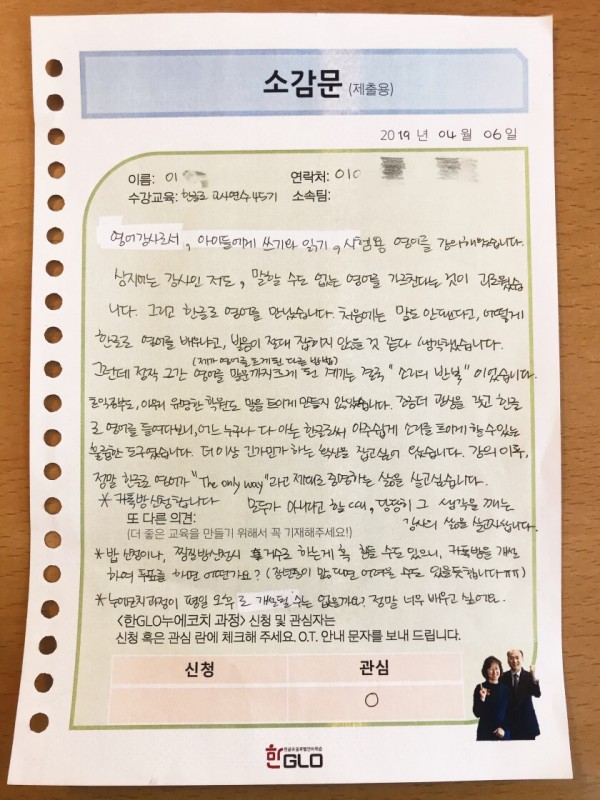 소감문 (제출용)
2019 년 04 월 06 일
이름: 이
연락처: 010
수강교육: 한글로 교사연수 45기 소속팀:
영어강사로서, 아이들에게 쓰기와 읽기, 시험용 영어를 강의해왔습니다.
강사인 저도, 말할 수도 없는 영어를 가르친다는 것이 괴로웠습
니다. 그리고 한글로 영어를 만났습니다. 처음에는 말도 안된다고, 어떻게
한글로 영어를 배우냐고, 발음이 절대 잡히지 않을 것 같다 생각했습니다.
(제가 영어를 듣게된 다른 방법)
그런데 정작 그간 영어를 말문까지트게 된 계기는 결국 "소리의 반복" 이었습니다.
아무리 유명한 학원도 말을 트이게 만들지 않았습니다. 조금더 관심을 갖고 한글
로 영어를 들여다보니, 어느 누구나 다 아는 한글로써 아주쉽게 소리를 트이게 할 수 있는
훌륭한 도구였습니다. 더 이상 긴가민가 하는 확신을 잡고싶어 왔습니다. 강의 이후,
정말 한글로 영어가 "The only way"라고 제대로 증명하는 삶을 살고싶습니다.
* 카톡방신청합니다 모두가 아니라고 할 때, 당당히 그 생각을 깨는
강사의 삶을 살고싶습니다.
또 다른 의견:
(더 좋은 교육을 만들기 위해서 꼭 기재해주세요!)
* 밥 신청이나, 찜질방신청시 거수로 하는게 혹 힘들 수도 있으니, 카톡방을 개설
하여 투표를 하면 어떤가요? (인원이 많을때면 어려울 수도 있을듯합니다 ㅠㅠ)
* 누에코치과정이 평일 오후 로 개설될 수는 없을까요? 정말 너무 배우고 싶어요.
<한GLO누에코치 과정> 신청 및 관심자는
신청 혹은 관심 란에 체크해 주세요. O.T. 안내 문자를 보내 드립니다.
신청 관심
○
한GLO